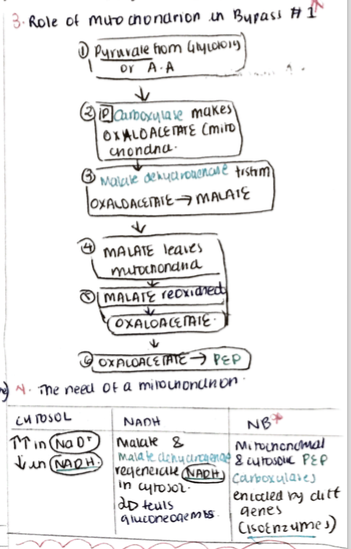 3. Role of mitochondrion in Bypass #1
① Pyruvate from Glycolysis
or A.A
② P Carboxylase makes
OXALOACETATE (mito
chondria.
③ Malate dehydrogenase
OXALOACETATE → MALATE
④ MALATE leaves
mitochondria
⑤ MALATE reoxidized
OXALOACETATE
⑥ OXALOACETATE → PEP
4. The need of a mitochondrion.
CYTOSOL
↑↑ in NAD+
↓ in NADH.
NADH
Malate &
Malate dehydrogenase
regenerate NADH
in cytosol.
gluconeogenesis.
NB*
Mitochondrial
& cytosolic PEP
Carboxylases
encoded by diff
genes
(isoenzymes)